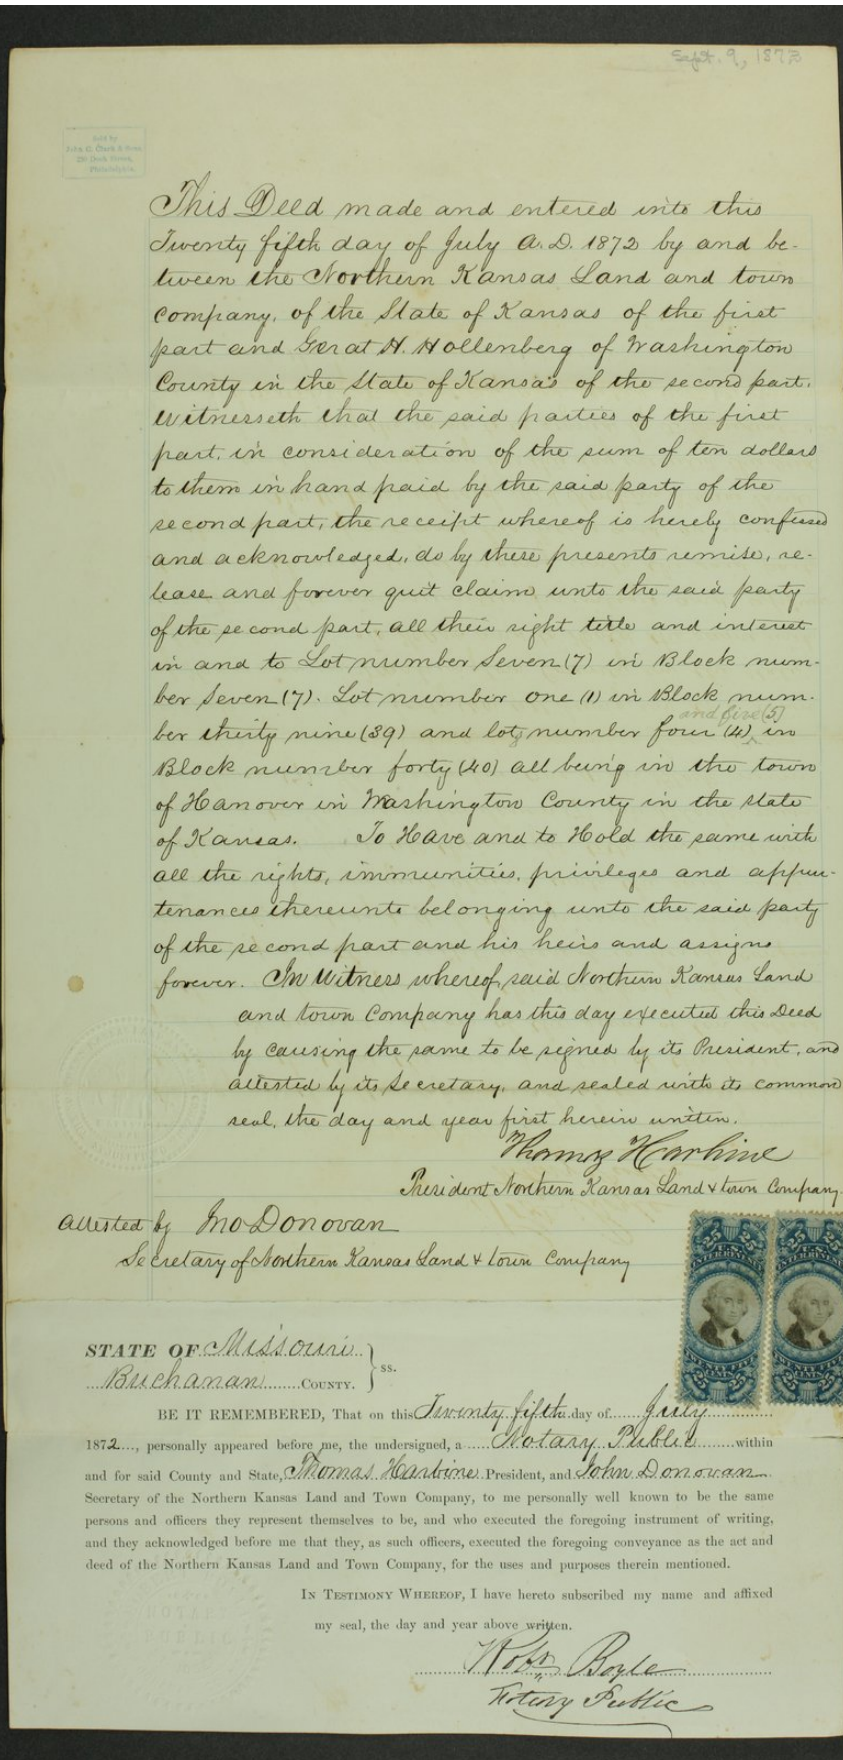 Sept. 9, 1873
Sold by
John C. Clark & Sons
230 Dock Street,
Philadelphia.
This Deed made and entered into this
Twenty fifth day of July A.D. 1872 by and be-
tween the Northern Kansas Land and town
company, of the State of Kansas of the first
part and Gerat H. Hollenberg of Washington
County in the State of Kansas of the second part.
Witnesseth that the said parties of the first
part, in consideration of the sum of ten dollars
to them in hand paid by the said party of the
second part, the receipt whereof is hereby confessed
and acknowledged, do by these presents remise, re-
lease and forever quit claim unto the said party
of the second part, all their right title and interest
in and to Lot number Seven (7) in Block num-
ber Seven (7). Lot number one (1) in Block num-
and five (5)
ber thirty nine (39) and lots number four (4) in
Block number forty (40) all being in the town
of Hanover in Washington County in the state
of Kansas. To Have and to Hold the same with
all the rights, immunities, privileges and appur-
tenances thereunto belonging unto the said party
of the second part and his heirs and assigns
forever. In Witness whereof, said Northern Kansas Land
and town Company has this day executed this Deed
by causing the same to be signed by its President, and
attested by its Secretary, and sealed with its common
seal, the day and year first herein written.
Thomas Harbine
President Northern Kansas Land & town Company
Attested by Jno Donovan
Secretary of Northern Kansas Land & town Company
25 U.S. 25 25 U.S. 25
INTER. REVENUE INTER. REVENUE
TWENTY FIVE TWENTY FIVE
CENTS CENTS
STATE OF Missouri } ss.
Buchanan COUNTY.
BE IT REMEMBERED, That on this Twenty fifth day of July
1872, personally appeared before me, the undersigned, a Notary Public within
and for said County and State, Thomas Harbine President, and John Donovan
Secretary of the Northern Kansas Land and Town Company, to me personally well known to be the same
persons and officers they represent themselves to be, and who executed the foregoing instrument of writing,
and they acknowledged before me that they, as such officers, executed the foregoing conveyance as the act and
deed of the Northern Kansas Land and Town Company, for the uses and purposes therein mentioned.
IN TESTIMONY WHEREOF, I have hereto subscribed my name and affixed
my seal, the day and year above written.
Boyle
Notary Public